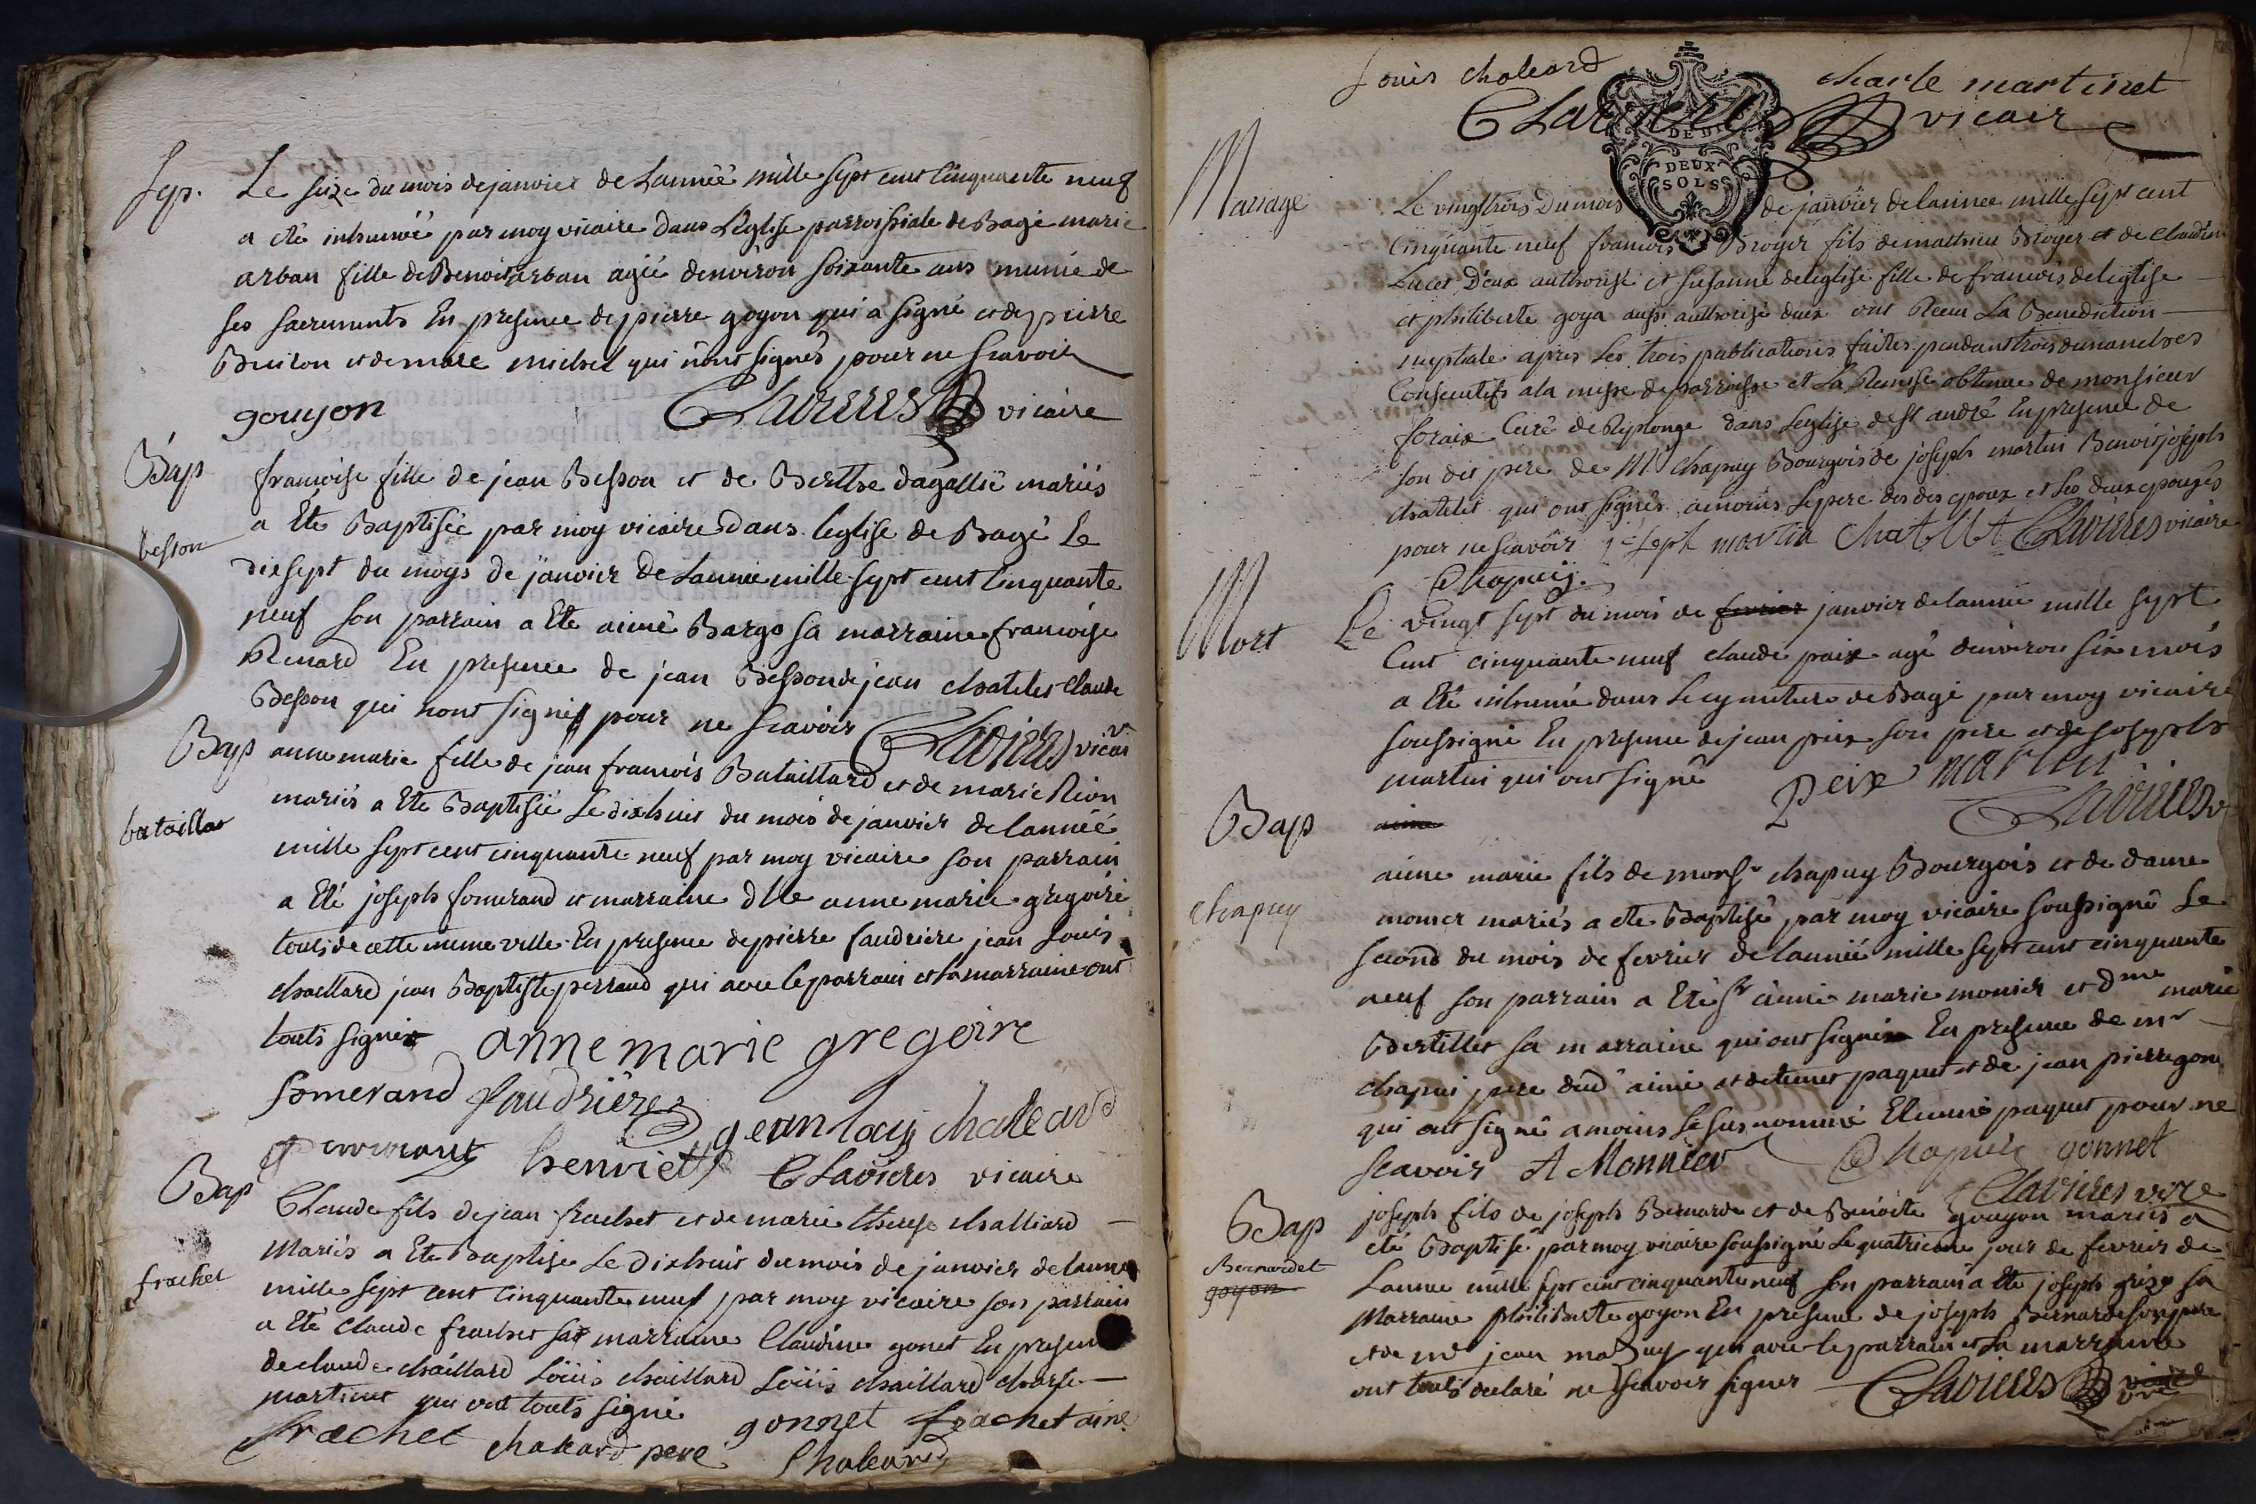 Sep. Le seize du mois de janvier de Lannéé mille sept cent Cinquante neuf
a eté inhumée par moy vicaire dans l'eglise parroissiale de Bagé marie
arban fille de Benoit arban agéé denviron soixante ans munie de
ses sacrements En presence de pierre goyon qui a signé et de pierre
Buiron et de marc michel qui n'ont signés pour ne scavoir
gouyon Clavieres vicaire
Bap francoise fille de jean Besson et de Berthe dagallié mariés
a Eté Baptisée par moy vicaire dans leglise de Bagé Le
besson
dixsept du moys de janvier de Lannee mille sept cent Cinquante
neuf son parrain a Eté aimé Barge sa marraine francoise
Renard En presence de jean Besson de jean chatelet Claude
Besson qui nont signés pour ne scavoir Clavieres vicair
Bap anne marie fille de jean francois Bataillard et de marie Rion
mariés a Eté Baptisée Le dixhuit du mois de janvier de lannéé
bataillar
mille sept cent cinquante neuf par moy vicaire son parrain
a Eté joseph fomerand et marraine dlle anne marie gregoire
touts de cette meme ville En presence de pierre faudriere jean Louis
chaellard jean Baptiste perraud qui avec le parrain et la marraine ont
touts signé anne marie gregoire
fomerand faudriere jean louis chaleard
henriett Clavieres vicaire
Bap Claude fils de jean frachet et de marie therese challiard
Mariés a Eté Baptisé Le Dixhuit du mois de janvier de lannee
frachet
mille sept cent Cinquante neuf par moy vicaire son parrain
a Eté Claude frachet sa marraine Claudine gonet En presence
de claude chaillard Loüis chaillard Loüis chaillard charle
martinet qui ont touts signé
frachet chaleard pere gonnet frachet ainé
Chaleard
Louis chaleard charle martinet
Clavieres vicair
DEUX
SOLS
Mariage Le vingttrois du mois de janvier de lannee mille sept cent
Cinquante neuf francois Broyer fils de mathieu Broyer et de Claudine
Lucet D'eux authorisé et susanne deleglise fille de francois deleglise
et philiberte goya aussi authorisé deux ont Receu La Benediction
nuptale apres Les trois publications faites pendant trois dimanches
Consecutifs a la messe de parroisse et La Remise obtenue de monsieur
foraix Curé de Replonge dans Leglise de St andré En presence de
son dit pere de Mr chapuy Bourgois de joseph martin Benoit joseph
chatelet qui ont signés amoins le pere des des epoux et Les deux epousés
pour ne scavoir joseph martin Chatelet Clavieres vicaire
Chapuy
Mort Le vingt sept du mois de fevrier janvier de lannee mille sept
Cent cinquante neuf claude paix agé denviron six mois
a Eté inhumé dans Le cymitiere de Bagé par moy vicaire
soussigné En presence de jean peix son pere et de joseph
martin qui ont signé peix martin
Clavieres v
Bap aime
aime marie fils de monsr chapuy Bourgois et de dame
monier mariés a eté Baptisé par moy vicaire soussigné Le
chapuy
second du mois de fevrier de lannéé mille sept cent cinquante
neuf son parrain a Eté sr aimé marie monier et dme marie
Bertillet sa marraine qui ont signé En presence de mr
chapui pere dud aimé et detienet paquet et de jean pierre gone
qui ont signé amoins le susnommé Etienne paquet pour ne
scavoir A Monnier Chapuis gonnet
Clavieres vire
Bap joseph fils de joseph Bernarde et de Benoite gouyon mariés a
eté Baptisé par moy vicaire soussigné Le quatrieme jour de fevrier de
Bernardet
goyon
Lanne mille sept cent cinquante neuf son parrain a Eté joseph grize sa
Marraine philiberte goyon En presence de joseph Bernarde son pere
et de mr jean mazuy qui avec le parrain et La marraine
ont touts declaré ne scavoir signer Clavieres vicaire
vire